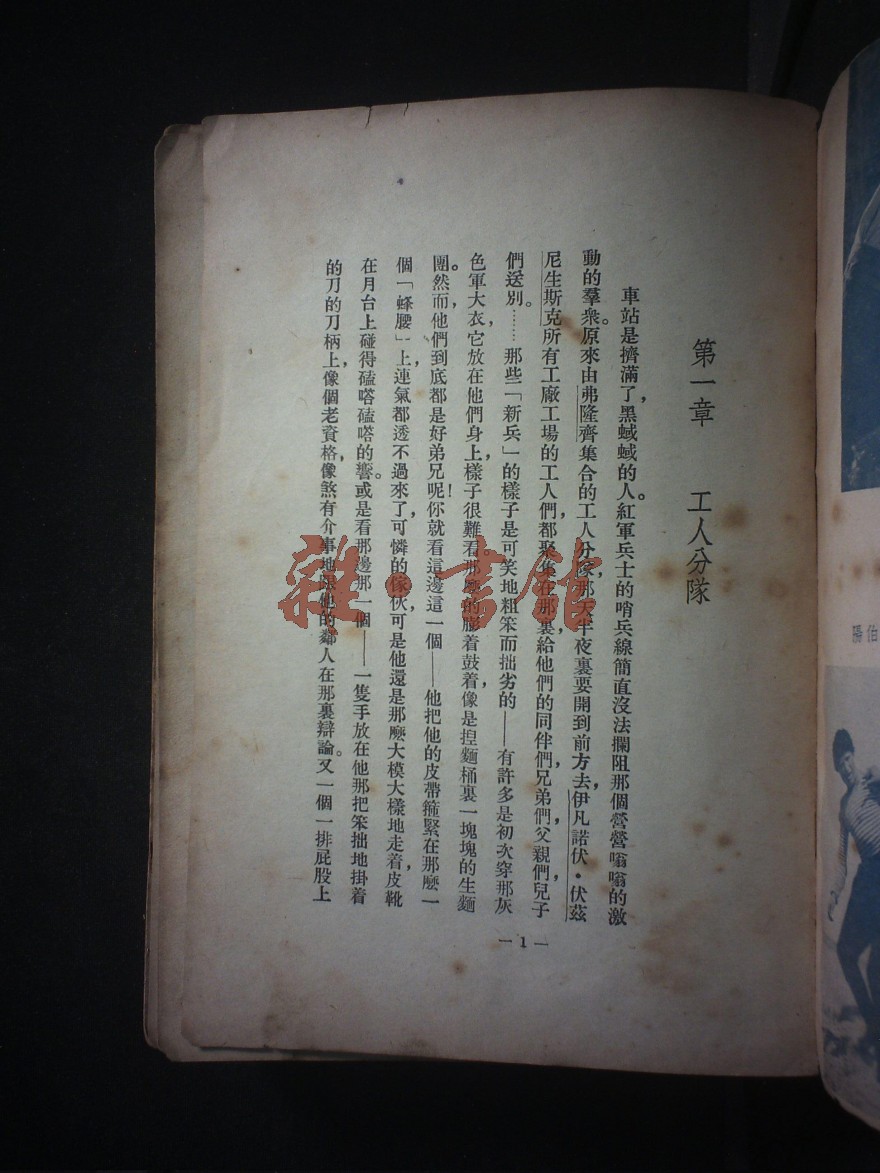 第一章　工人分隊
車站是擠滿了，黑蜮蜮的人。紅軍兵士的哨兵線簡直沒法攔阻那個營營嗡嗡的激
動的羣衆。原來由弗隆齊集合的工人分隊，那天半夜裏要開到前方去，伊凡諾伏·伏茲
尼生斯克所有工廠工場的工人們，都聚集在那裏，給他們的同伴們，兄弟們，父親們，兒子
們送別。……那些「新兵」的樣子是可笑地粗笨而拙劣的——有許多是初次穿那灰
色軍大衣，它放在他們身上，樣子很難看。那麼的膨着鼓着，像是揑麵桶裏一塊塊的生麵
團。然而，他們到底都是好弟兄呢！你就看這邊這一個——他把他的皮帶箍緊在那麼一
個「蜂腰」上，連氣都透不過來了，可憐的傢伙，可是他還是那麼大模大樣地走着，皮靴
在月台上碰得磕嗒磕嗒的響。或是看那邊那一個——一隻手放在他那把笨拙地掛着
的刀的刀柄上，像個老資格，像煞有介事地跟他的鄰人在那裏辯論。又一個一排屁股上
—1—
雜·書館
勝伯